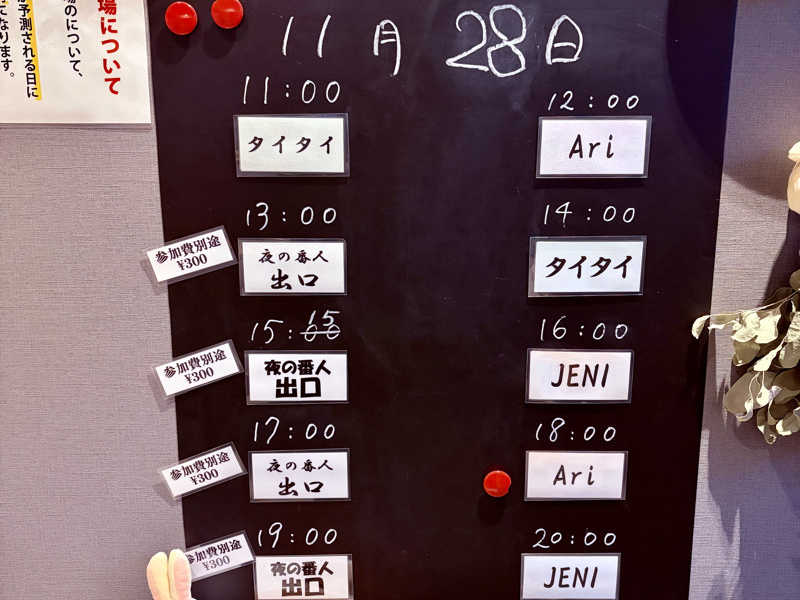 場について
場のについて、
予測される日に
になります。
11月28日
11:00
タイタイ
12:00
Ari
13:00
参加費別途
¥300
夜の番人
出口
14:00
タイタイ
15:00
15
参加費別途
¥300
夜の番人
出口
16:00
JENI
17:00
参加費別途
¥300
夜の番人
出口
18:00
Ari
19:00
参加費別途
¥300
夜の番人
出口
20:00
JENI